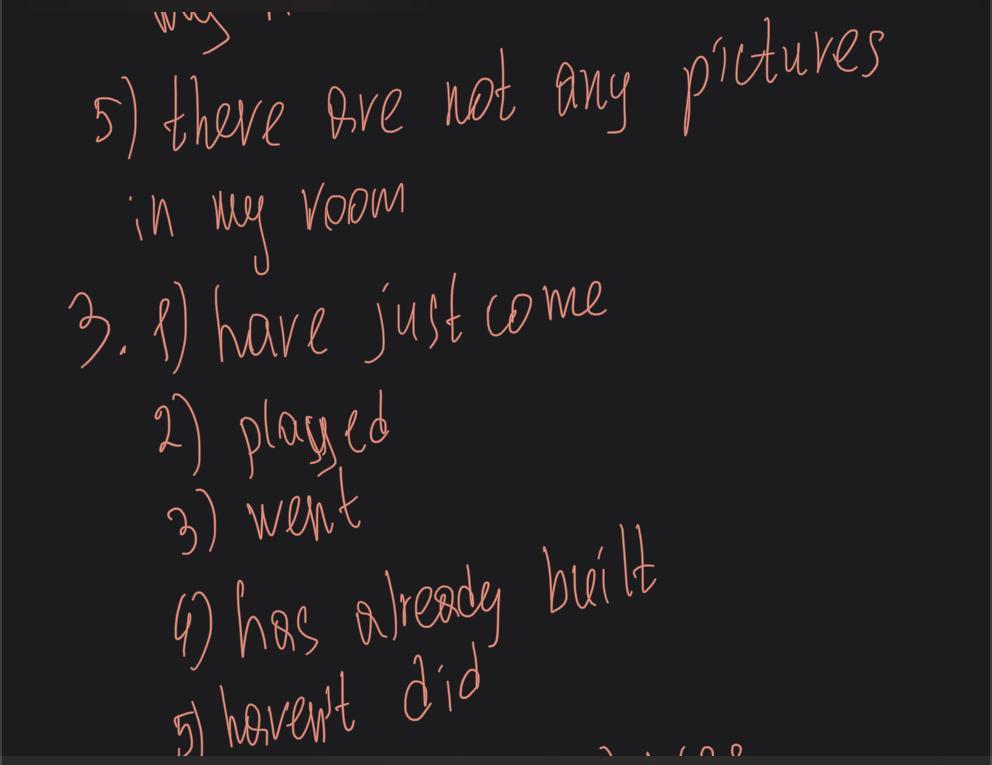 my
5) there are not any pictures
in my room
3. 1) have just come
2) played
3) went
4) has already built
5) haven't did